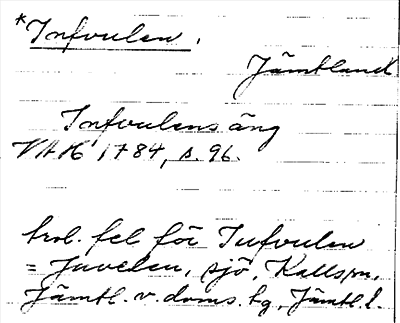 *Infvulen.
Jämtland
Infvulens äng
VAH 1784, s. 96.
trol. fel för Iufvulen
= Juvelen, sjö, Kallssn,
Jämtl. v. doms. tg, Jämtl. l.